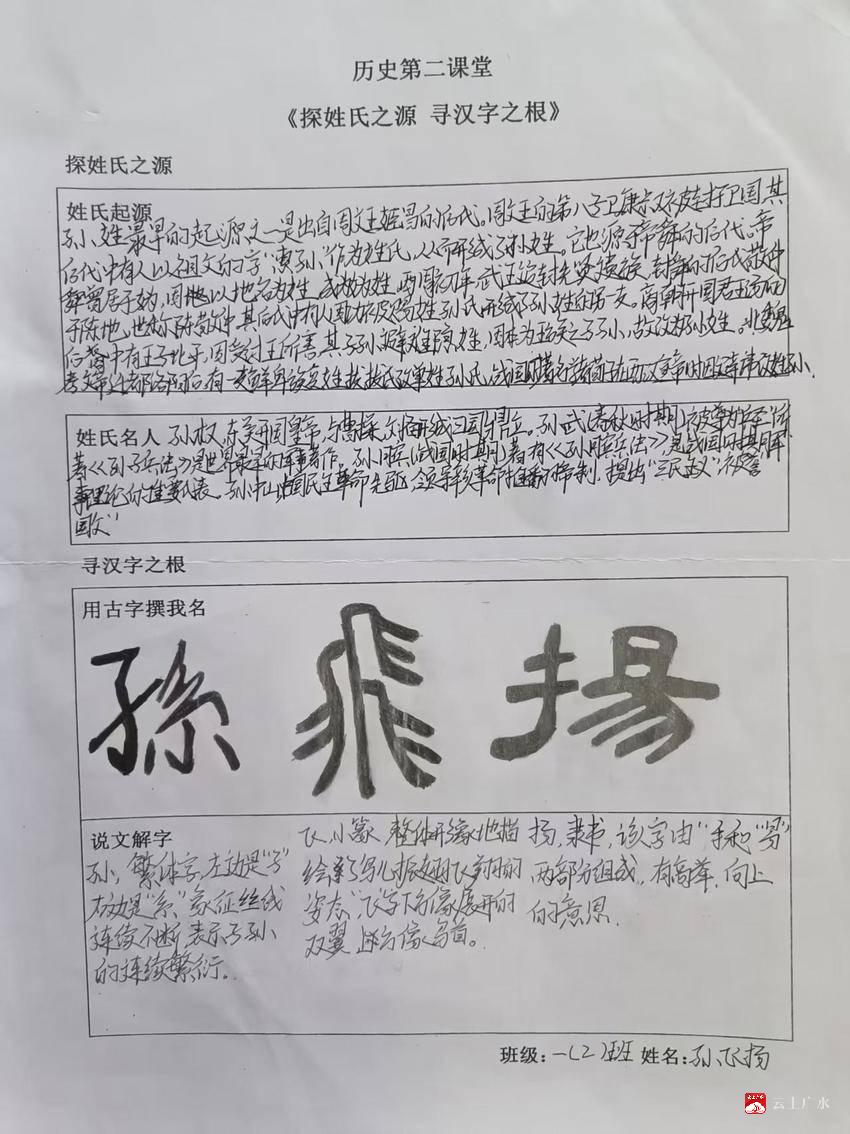 历史第二课堂
《探姓氏之源 寻汉字之根》
探姓氏之源
姓氏起源
孙姓最早的起源之一是出自周文王姬昌的后代。周文王的第八子卫康叔被封于卫国,其
后代中有人以祖父的字"惠孙"作为姓氏,从而形成了孙姓。它也源于帝舜的后代。帝
舜曾居于妫,因地以地名为姓,成妫姓,西周初年,武王追封先贤遗族,封舜的后代妫满
于陈地,
后裔中有王子比干,因受纣王所害,其子孙避难隐姓,因本为王族之子孙,故改为孙姓。北魏
姓氏名人 孙权,东吴开国皇帝,与曹操、刘备形成三国鼎立。孙武(春秋时期)被尊称"兵圣"所
著《孙子兵法》是世界最早的军事著作。孙膑(战国时期)著有《孙膑兵法》是战国时期军
事理论的重要代表。孙中山中国民主革命先驱,领导辛亥革命推翻帝制,提出"三民主义"被誉
国父"
寻汉字之根
用古字撰我名
孫 飛 揚
说文解字
孙,繁体字,左边是"子"
右边是"系"象征丝线
连续不断,表示子孙
的持续繁衍。
飞,小篆 整体形象地描
绘了鸟儿振翅飞翔的
姿态,飞字下方像展开的
双翼 上方像鸟首。
扬,隶书,该字由"手和"昜"
两部分组成,有高举,向上
的意思.
班级:一(2)班 姓名:孙飞扬
云上广水